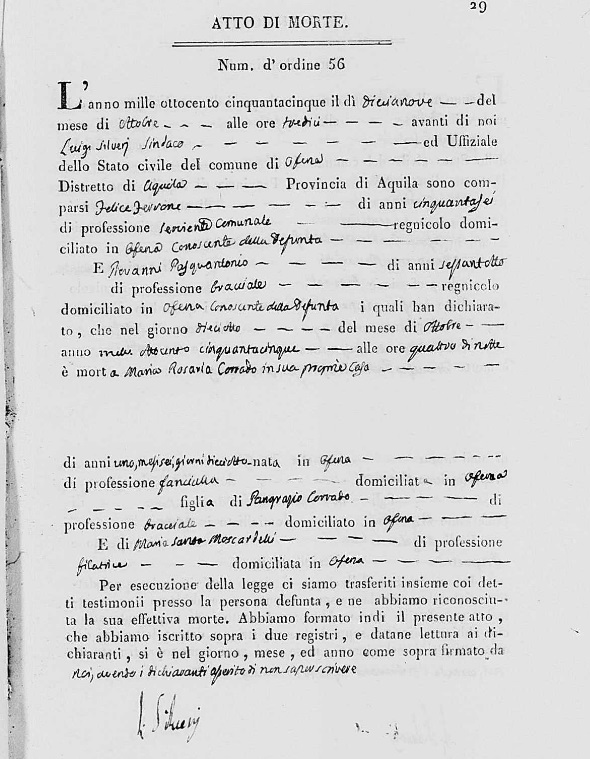 29
ATTO DI MORTE.
Num. d'ordine 56
L'anno mille ottocento cinquantacinque il dì diecianove — — del
mese di Ottobre — — — alle ore tredici — — — — avanti di noi
Luigi Silverj Sindaco — — — — — — — ed Uffiziale
dello Stato civile del comune di Ofena — — — — — —
Distretto di Aquila — — — — Provincia di Aquila sono com-
parsi Felice — — — — — — di anni cinquantasei
di professione serviente Comunale — — regnicolo domi-
ciliato in Ofena Conoscente della Defunta — — — — — — —
E Giovanni Pasquantonio — — — — — di anni sessantotto
di professione bracciale — — — — — — regnicolo
domiciliato in Ofena Conoscente della Defunta i quali han dichiara-
to, che nel giorno dieciotto — — — — del mese di Ottobre — —
anno mille Ottocento cinquantacinque — — — alle ore quattro di notte
è morta Maria Rosaria Corrado in sua propria Casa — — — — —
di anni uno, mesi sei, giorni dieciotto nata in Ofena — — — — — —
di professione fanciulla — — — — — domiciliata in Ofena
— — — — — figlia di Pangrazio Corrado — — — — — di
professione bracciale — — — — domiciliato in Ofena — — — —
E di Maria Santa Moscardelli — — — — — di professione
filatrice — — — — domiciliata in Ofena — — — — — —
Per esecuzione della legge ci siamo trasferiti insieme coi det-
ti testimonii presso la persona defunta, e ne abbiamo riconosciu-
ta la sua effettiva morte. Abbiamo formato indi il presente atto,
che abbiamo iscritto sopra i due registri, e datane lettura ai di-
chiaranti, si è nel giorno, mese, ed anno come sopra firmato da
Noi, avendo i dichiaranti asserito di non saper scrivere
L. Silverj